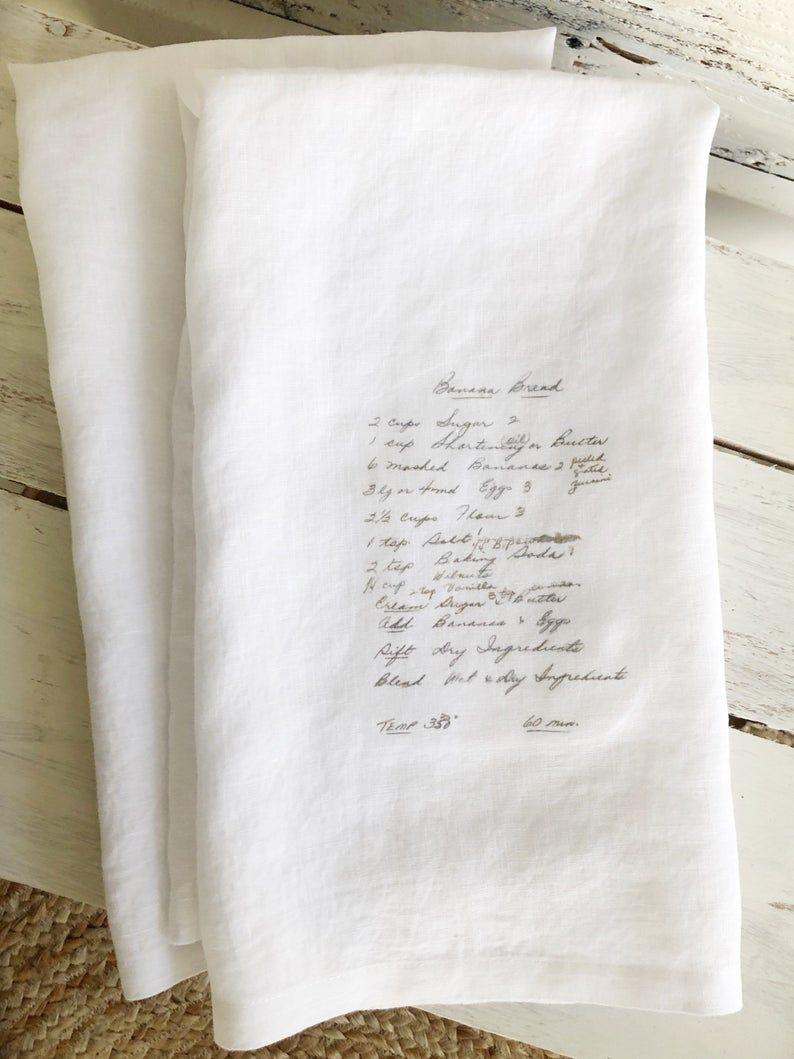 Banana Bread
2 cups Sugar 2
1 cup Shortening oil or Butter
6 mashed Bananas 2 peeled + grated
3 lg or 4 md Eggs 3
2½ cups Flour 3
1 tsp Salt 1
2 tsp Baking Soda 1
Walnuts
cup 2 tsp Vanilla 3 tsp
Cream Sugar & Butter
Add Bananas & Eggs
Sift Dry Ingredients
Blend Wet & Dry Ingredients
TEMP 350° 60 min.